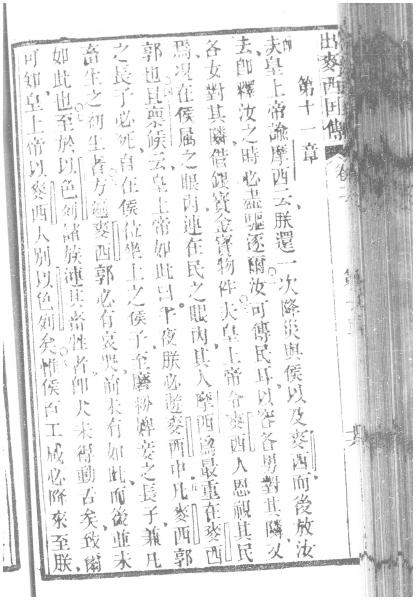 出麥西囘傳
第十一章
夫皇上帝諭摩西云朕還一次降災與侯以及麥西而後放汝
去卽釋汝之時必盡驅逐爾汝可傳民耳以容各男對其隣又
各女對其隣借銀寳金寳物件夫皇上帝令麥西人恩視其民
焉况在侯屬之眼內連在民之眼內其人摩西爲最重在麥西
郭也且與侯云皇上帝如此曰半夜朕必遊麥西中凡麥西郭
之長子必死自在侯位坐上之侯子至磨粉婢妾之長子兼凡
畜生之初生者方遍麥西郭必有哀哭前未有如此而後並未
如此也至於以色列諸族連其畜牲者卽犬未得動舌矣致爾
可知皇上帝以麥西人別以色列矣惟侯百工咸必降來至朕